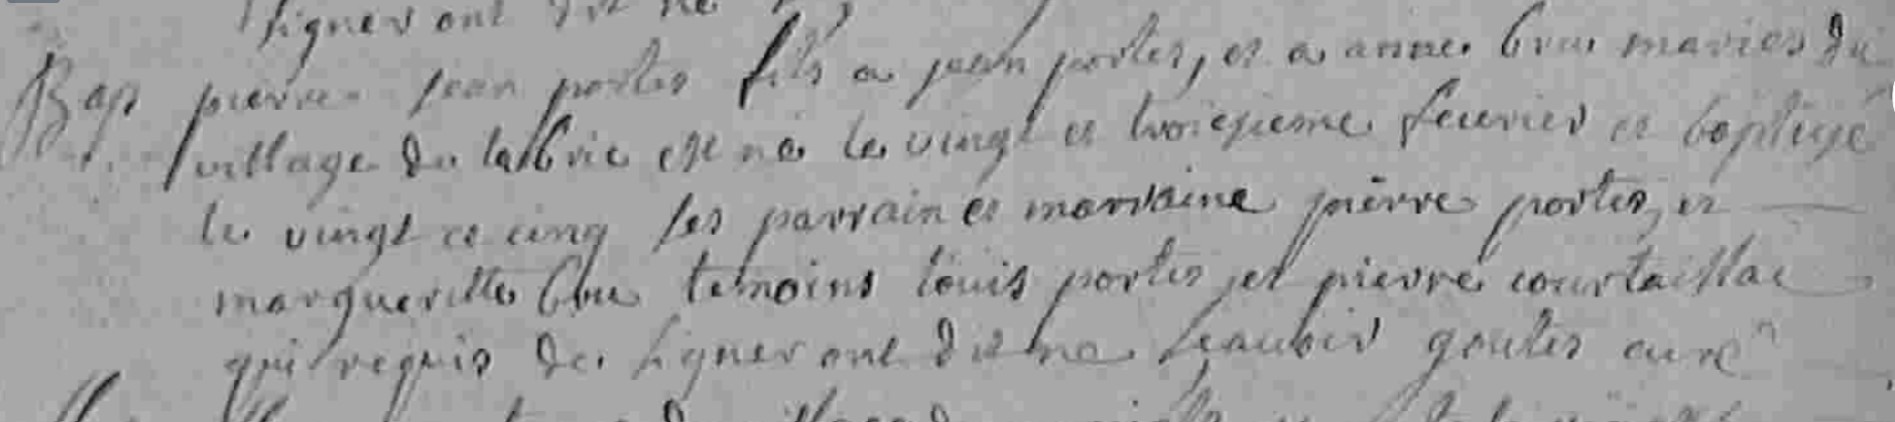 signer ont dit ne
Bap pierre jean portes fils a jean portes, et a anne bru maries du
village de labrie est né le vingt et troisieme feuvrier et baptisé
le vingt et cinq ses parrain et marraine pierre portes, et
margueritte bru temoins louis portes, et pierre courtaillac
qui requis de signer ont dit ne scauoir goutes curé